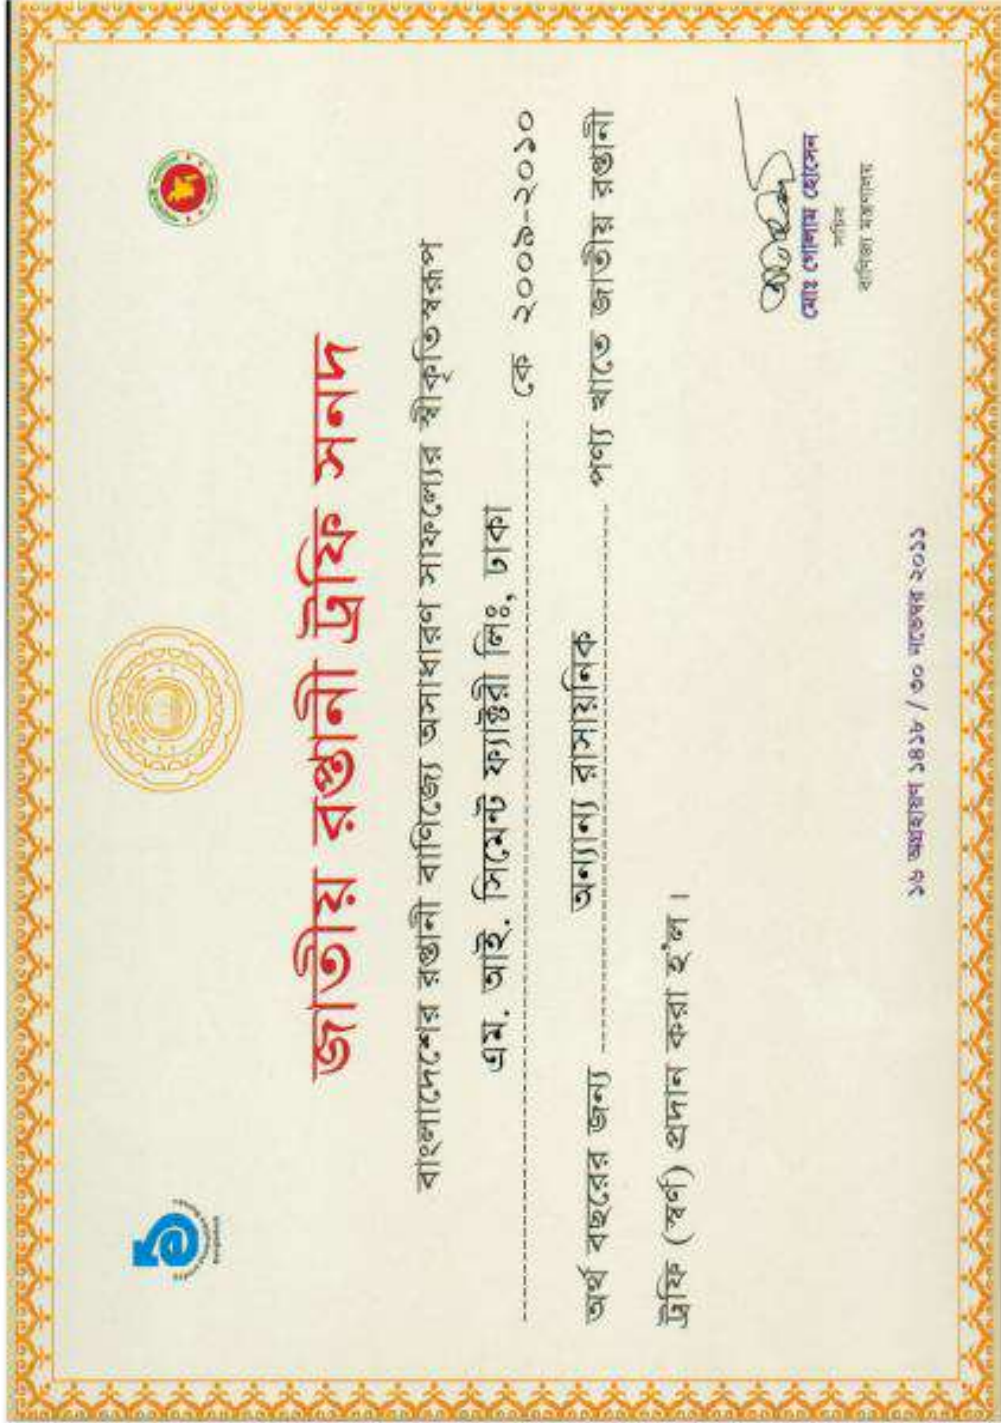 জাতীয় রপ্তানী ট্রফি সনদ
বাংলাদেশের রপ্তানী বাণিজ্যে অসাধারণ সাফল্যের স্বীকৃতি স্বরূপ
এম. আই. সিমেন্ট ফ্যাক্টরী লিঃ, ঢাকা কে ২০০৯-২০১০
অর্থ বছরের জন্য অন্যান্য রাসায়নিক পণ্য খাতে জাতীয় রপ্তানী
ট্রফি (স্বর্ণ) প্রদান করা হ'ল ।
মোঃ গোলাম হোসেন
সচিব
বাণিজ্য মন্ত্রণালয়
১৬ অগ্রহায়ণ ১৪১৮ / ৩০ নভেম্বর ২০১১